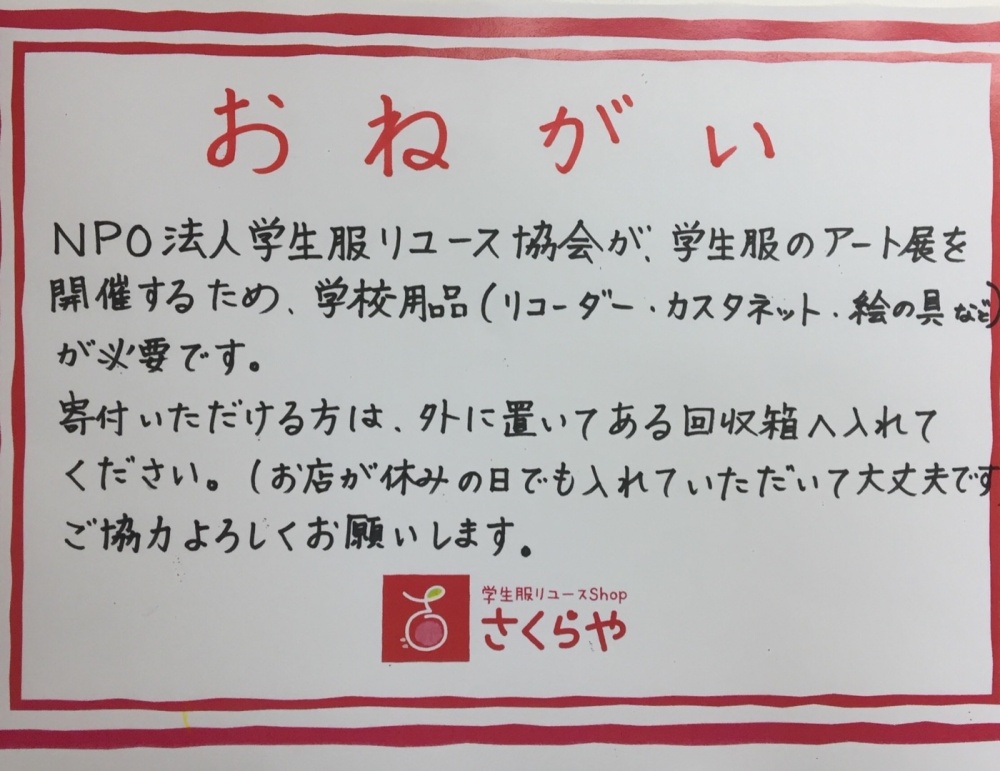 おねがい
NPO法人学生服リユース協会が、学生服のアート展を
開催するため、学校用品(リコーダー・カスタネット・絵の具など)
が必要です。
寄付いただける方は、外に置いてある回収箱へ入れて
ください。(お店が休みの日でも入れていただいて大丈夫です
ご協力よろしくお願いします。
学生服リユースShop
さくらや